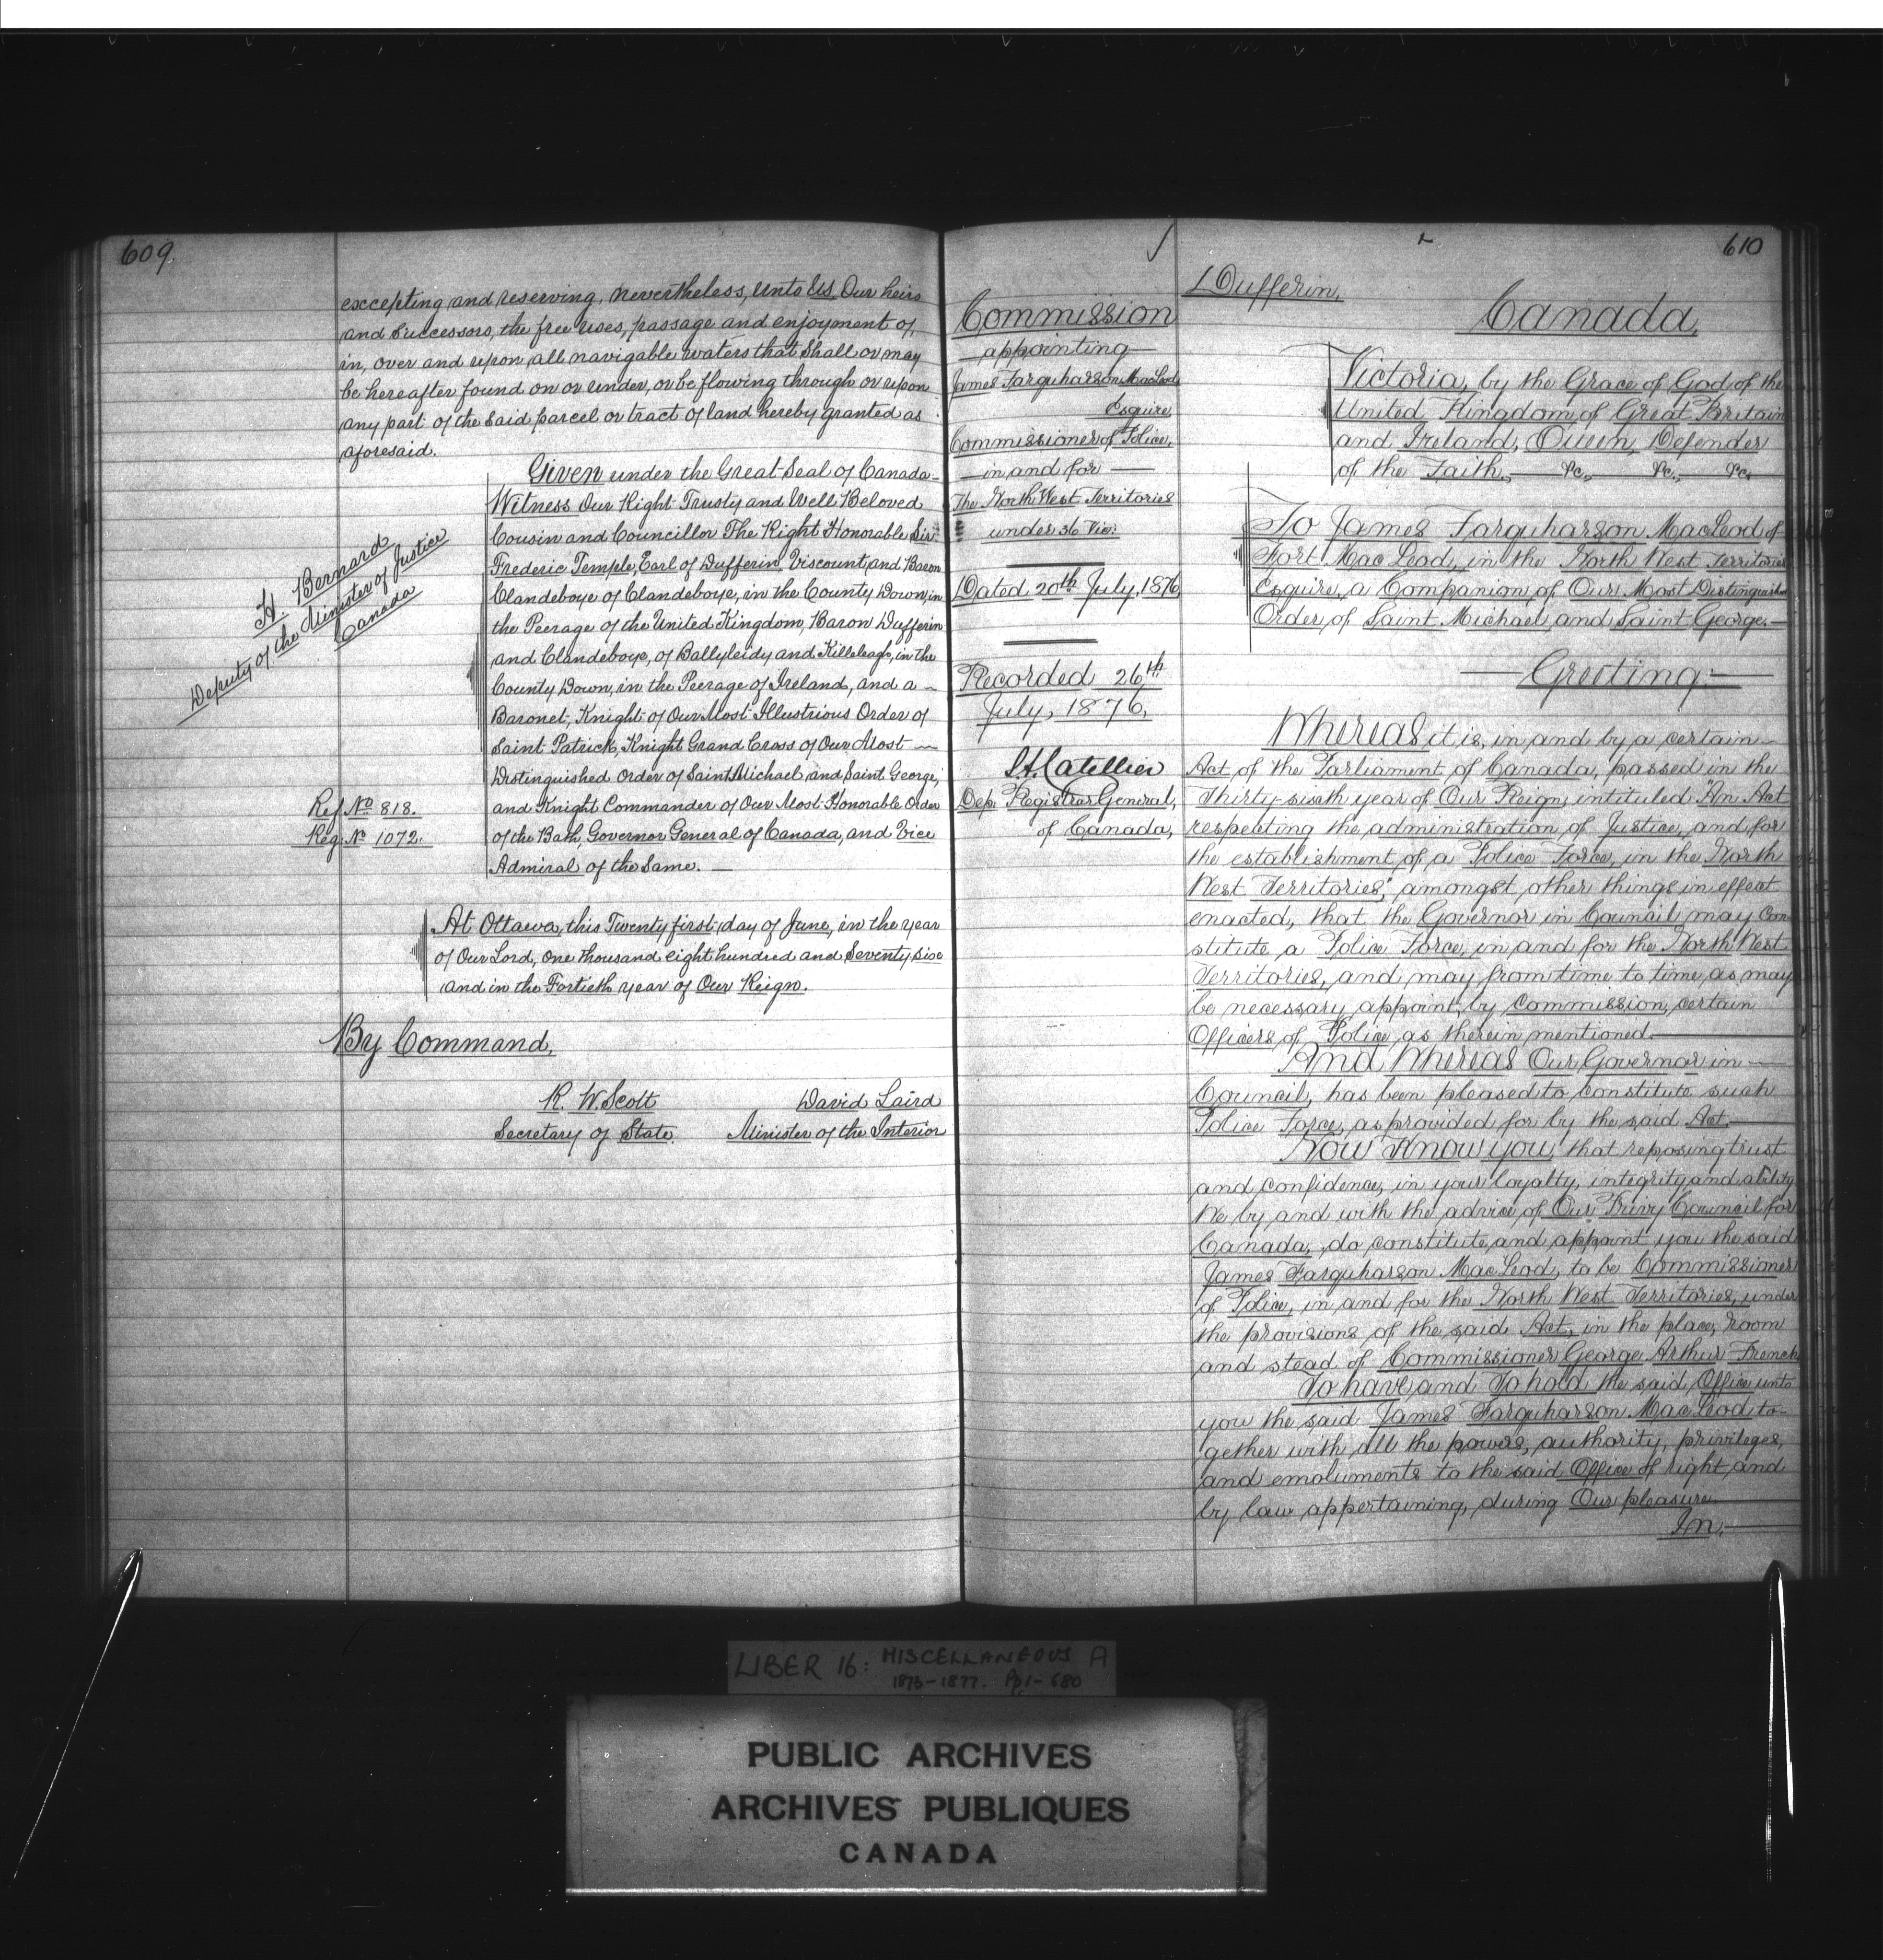 609.
excepting and reserving, nevertheless, unto Us Our heirs
and Successors, the free uses, passage and enjoyment of,
in, over and upon all navigable waters that Shall or may
be hereafter found on or under, or be flowing through or upon
any part of the said parcel or tract of land hereby granted as
aforesaid.
Given under the Great Seal of Canada-
Witness Our Right Trusty and Well Beloved
Cousin and Councillor The Right Honorable Sir
Frederic Temple, Earl of Dufferin, Viscount and Baron
Clandeboye of Clandeboye, in the County Down, in
the Peerage of the United Kingdom, Baron Dufferin
and Clandeboye, of Ballyleidy and Killeleagh, in the
County Down, in the Peerage of Ireland, and a
Baronet, Knight of Our Most Illustrious Order of
Saint Patrick, Knight Grand Cross of Our Most
Distinguished Order of Saint Michael and Saint George,
and Knight Commander of Our Most Honorable Order
of the Bath, Governor General of Canada, and Vice
Admiral of the Same.
H. Bernard
Deputy of the Minister of Justice
Canada
Ref. No 818.
Reg. No 1072.
At Ottawa, this Twenty first day of June, in the year
of Our Lord, one thousand eight hundred and Seventy six
and in the Fortieth year of Our Reign.
By Command,
R. W. Scott
Secretary of State.
David Laird
Minister of the Interior
610
Commission
appointing
James Farquharson MacLeod
Esquire
Commissioner of Police,
in and for
The North West Territories
under 36 Vic:
Dated 20th July, 1876
Recorded 26th
July, 1876,
Catellier
Dep. Registrar General,
of Canada,
Dufferin,
Canada,
Victoria, by the Grace of God of the
United Kingdom of Great Britain
and Ireland, Queen, Defender
of the Faith, &c., &c., &c.
To James Farquharson MacLeod of
Fort Mac Leod, in the North West Territories
Esquire, a Companion of Our Most Distinguished
Order of Saint Michael and Saint George.
Greeting:
Whereas it is, in and by a certain
Act of the Parliament of Canada, passed in the
Thirty-sixth year of Our Reign, intituled "An Act
respecting the administration of Justice, and for
the establishment of a Police Force, in the North
West Territories", amongst other things in effect
enacted, that the Governor in Council may con-
stitute a Police Force, in and for the North West
Territories, and may from time to time, as may
be necessary appoint by Commission, certain
Officers of Police as therein mentioned.
And Whereas Our Governor in
Council, has been pleased to constitute such
Police Force, as provided for by the said Act.
Now Know you, that reposing trust
and confidence, in your loyalty, integrity and ability
We by and with the advice of Our Privy Council for
Canada, do constitute and appoint you the said
James Farquharson MacLeod, to be Commissioner
of Police, in and for the North West Territories, under
the provisions of the said Act, in the place, room
and stead of Commissioner George Arthur French
To have and To hold the said Office unto
you the said James Farquharson MacLeod to-
gether with all the powers, authority, privileges,
and emoluments to the said Office of right and
by law appertaining, during Our pleasure
In,
LIBER 16: MISCELLANEOUS A
1873-1877. Pp 1-680
PUBLIC ARCHIVES
ARCHIVES PUBLIQUES
CANADA